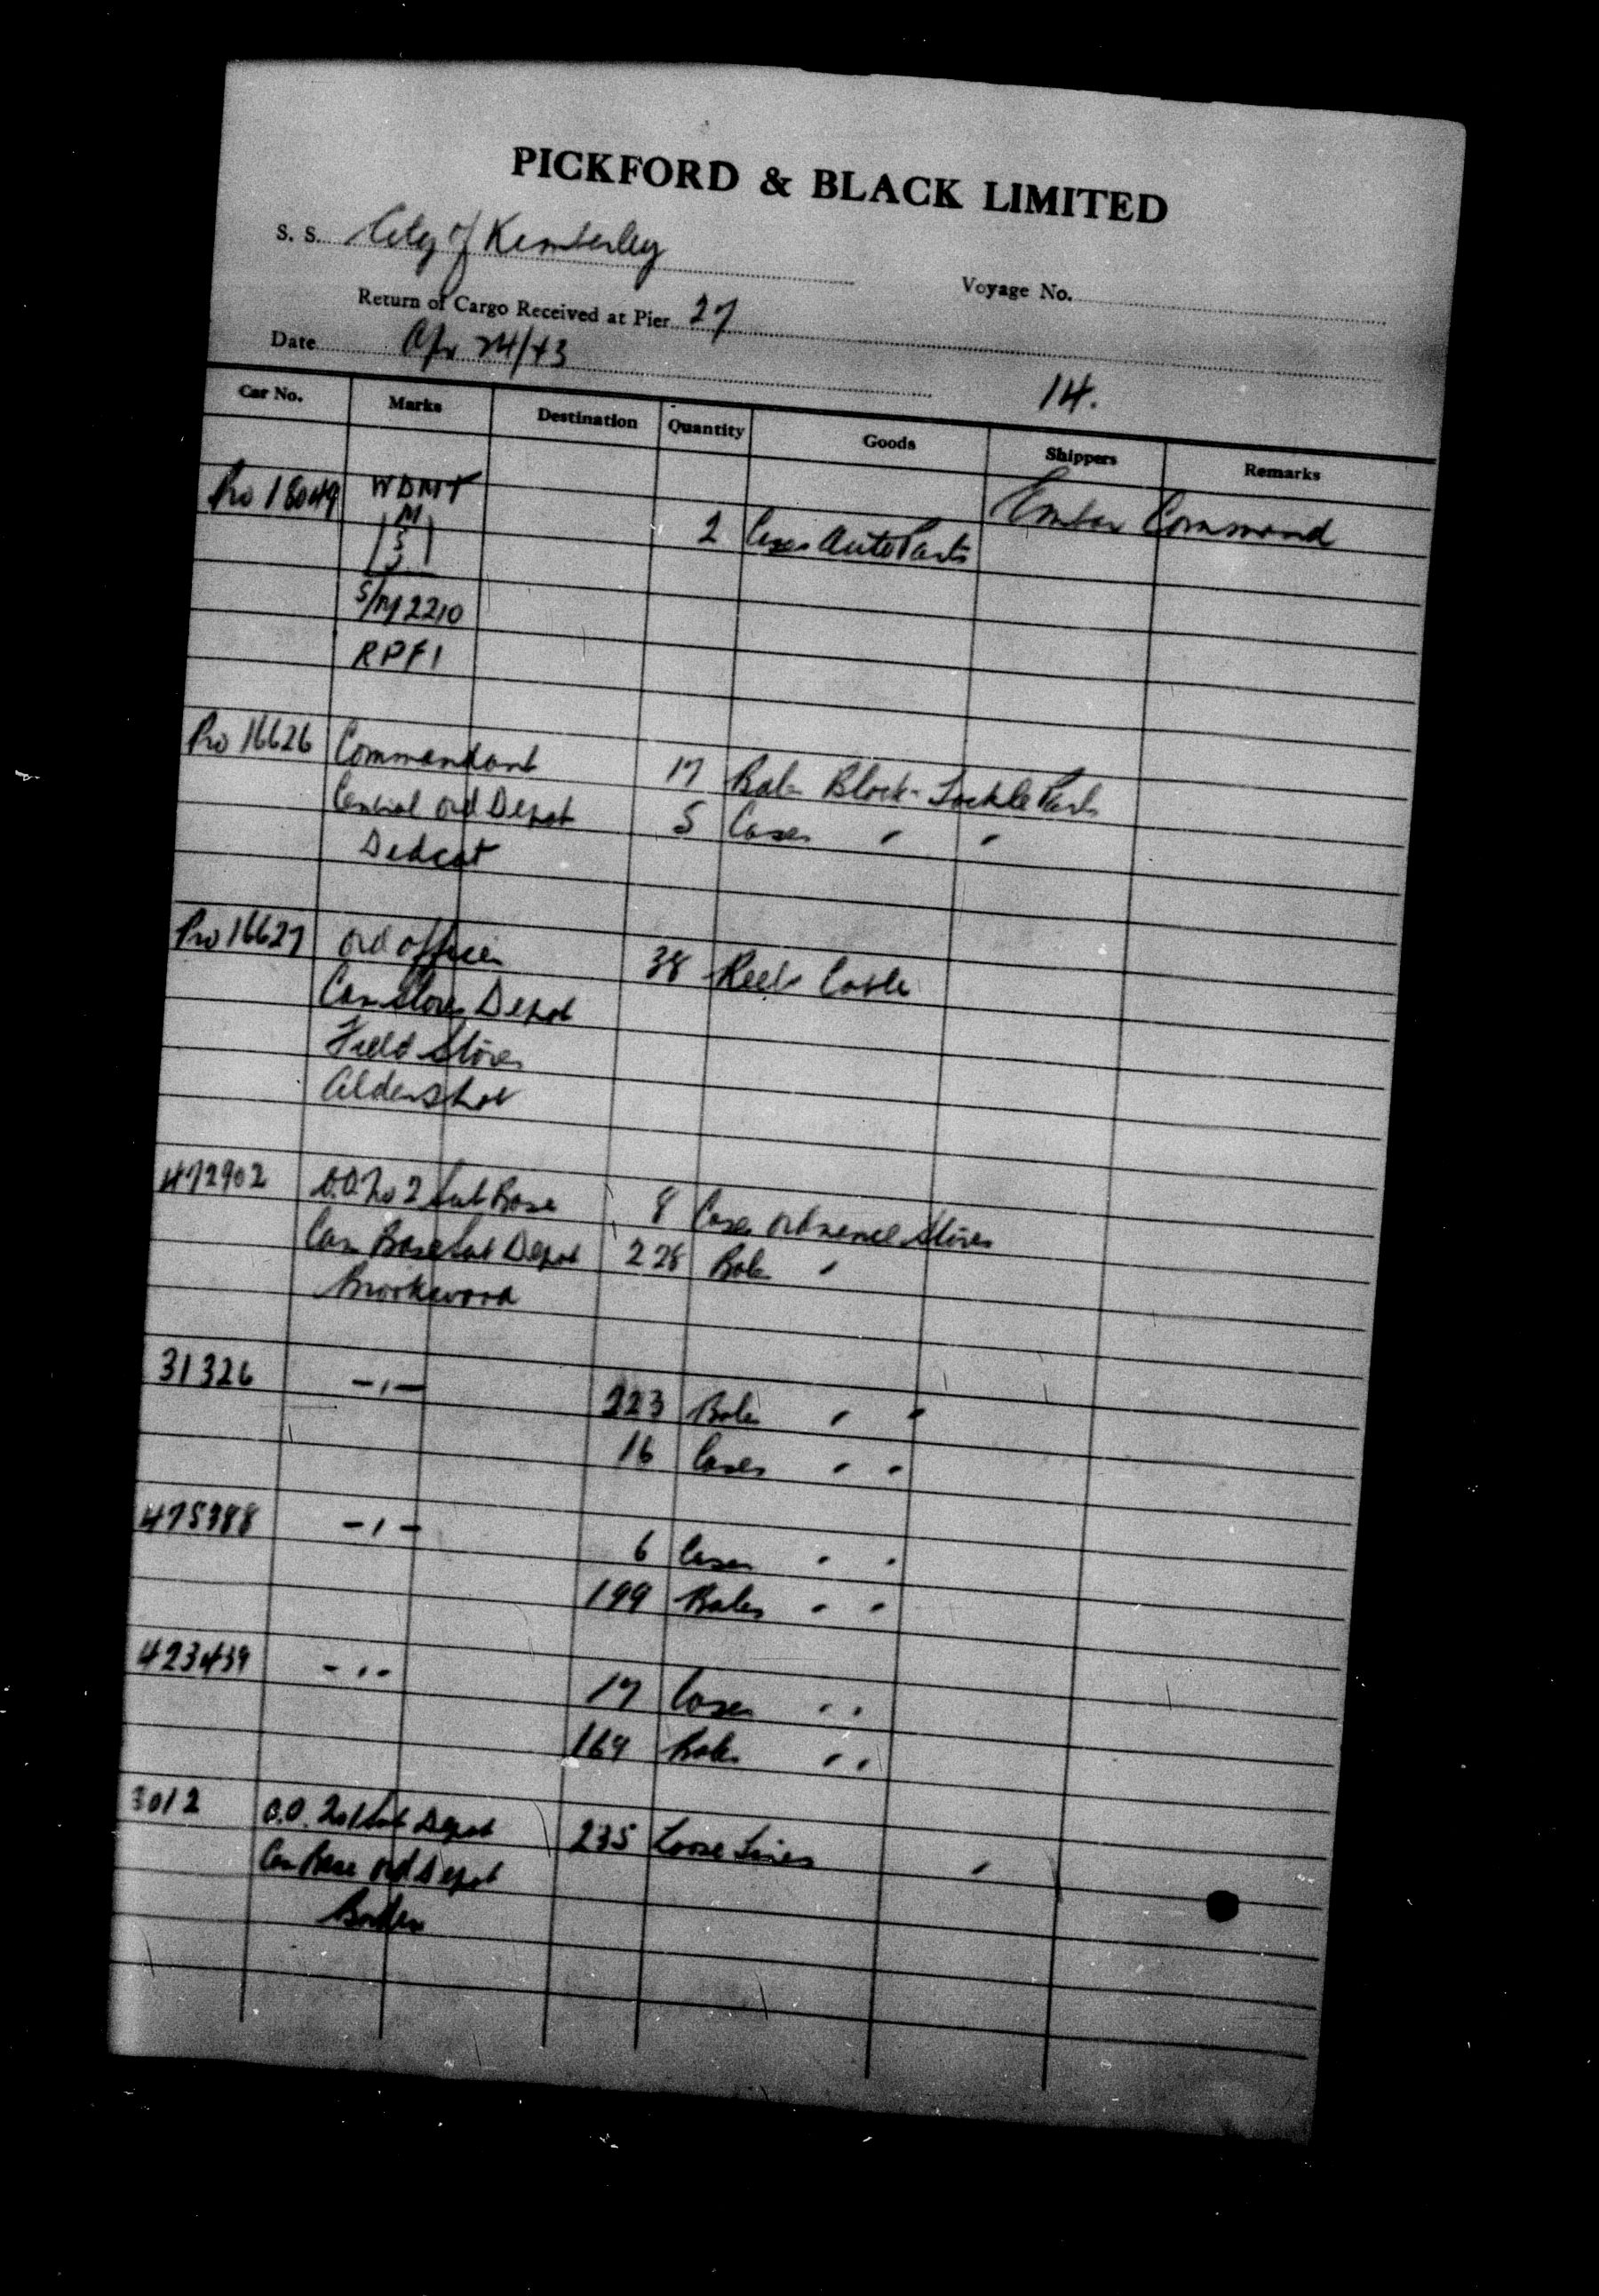 PICKFORD & BLACK LIMITED
S. S. City of Kimberley
Voyage No.
Return of Cargo Received at Pier 27
Date Apr 24/43
14.
Car No. Marks Destination Quantity Goods Shippers Remarks
Pro 18049 WDMT Embar Command
M 2 Cases Auto Parts
S
J
S/M 2210
RPF1
Pro 16626 Commandant 17 Bale Block - Tackle Parts
Central Ord Depot 5 Cases " "
Didcot
Pro 16627 Ord officer 38 Reels Cable
Can Stores Depot
Field Stores
Aldershot
472902 O.O. No 2 Sub Base 8 Cases Ordnance Stores
Can Base Sub Depot 228 Bale "
Brookwood
31326 - " - 223 Bale " "
16 Cases " "
475388 - " - 6 Cases " "
199 Bales " "
423439 - " - 17 Cases " "
169 Bale " "
3012 O.O. No 1 Sub Depot 235 Loose "
Can Base Ord Depot
Borden